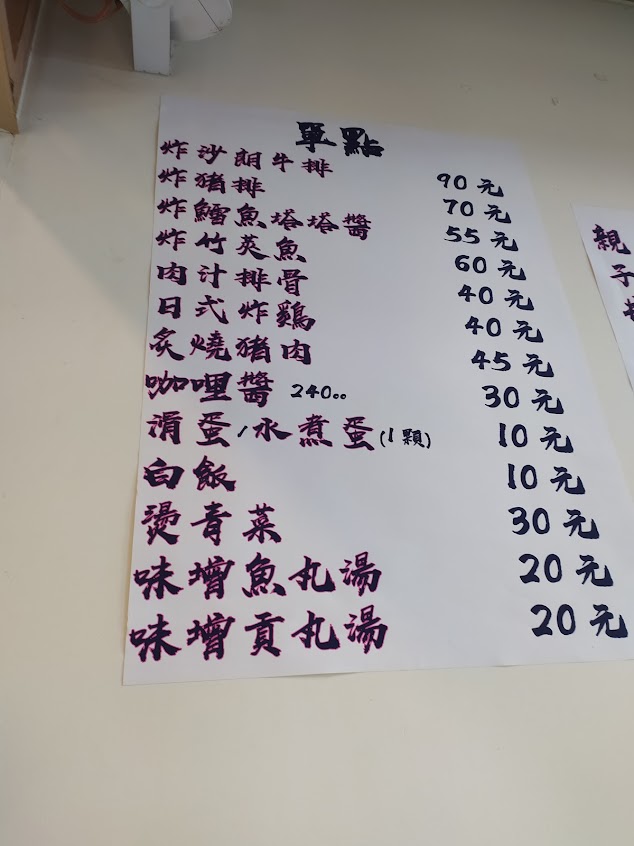 單點
炸沙朗牛排 90元
炸豬排 70元
炸鱈魚塔塔醬 55元
炸竹莢魚 60元
肉汁排骨 40元
日式炸鷄 40元
炙燒豬肉 45元
咖哩醬 240cc 30元
滑蛋/水煮蛋(1顆) 10元
白飯 10元
燙青菜 30元
味增魚丸湯 20元
味增貢丸湯 20元
親子